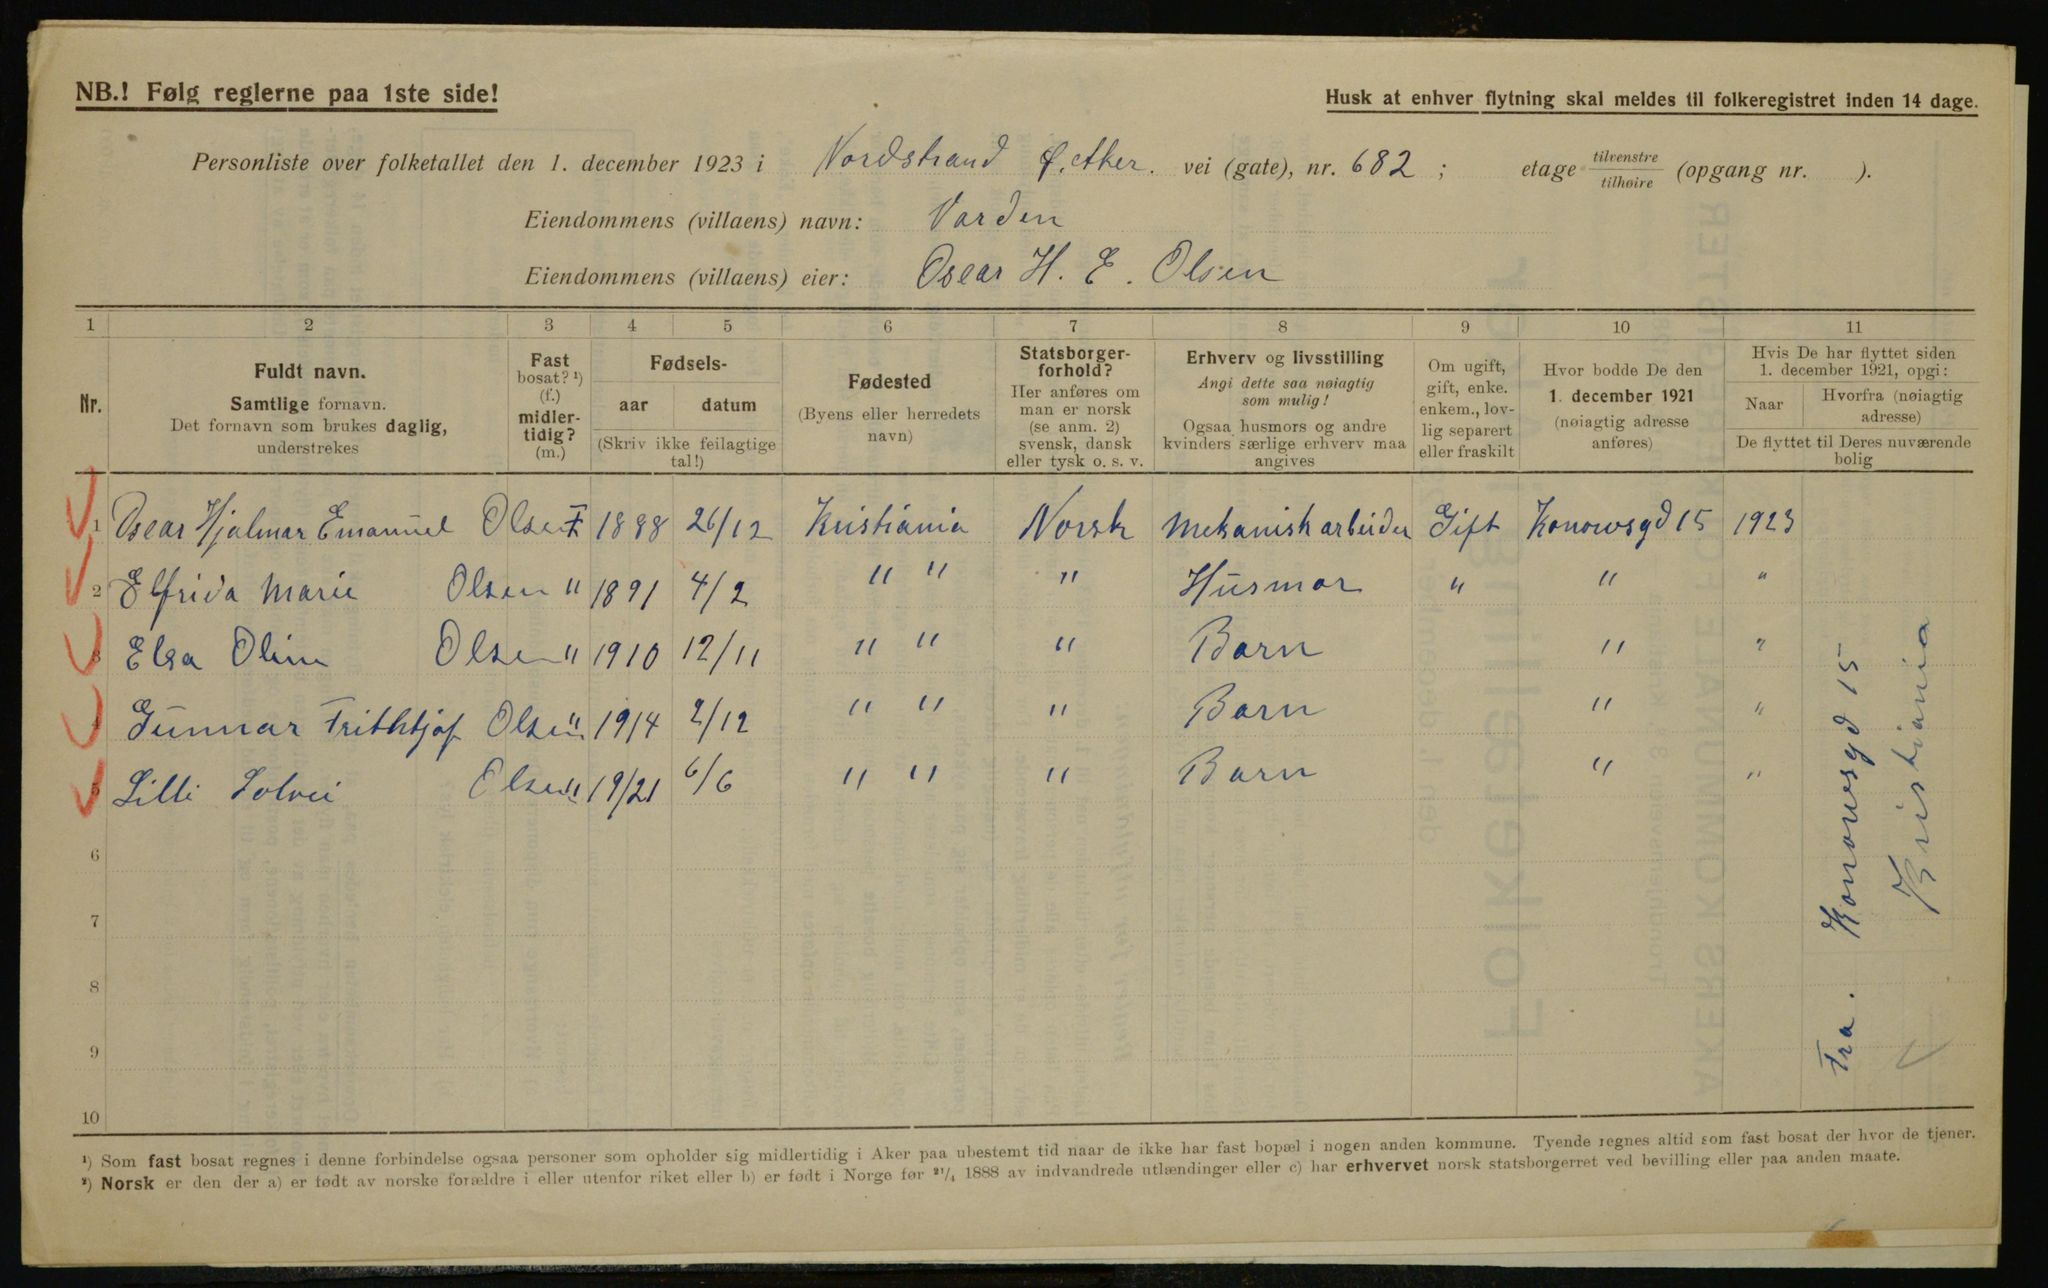 NB.! Følg reglerne paa 1ste side!
Husk at enhver flytning skal meldes til folkeregistret inden 14 dage.
Personliste over folketallet den 1. december 1923 i Nordstrand Ø. Aker. vei (gate), nr. 682 ; etage tilvenstre / tilhøire (opgang nr. ).
Eiendommens (villaens) navn: Varden
Eiendommens (villaens) eier: Oscar H. E. Olsen
1 2 3 4 5 6 7 8 9 10 11
Nr.
Fuldt navn.
Samtlige fornavn.
Det fornavn som brukes daglig,
understrekes
Fast
bosat? ¹)
(f.)
midler-
tidig?
(m.)
Fødsels-
aar datum
(Skriv ikke feilagtige
tal!)
Fødested
(Byens eller herredets
navn)
Statsborger-
forhold?
Her anføres om
man er norsk
(se anm. 2)
svensk, dansk
eller tysk o. s. v.
Erhverv og livsstilling
Angi dette saa nøiagtig
som mulig!
Ogsaa husmors og andre
kvinders særlige erhverv maa
angives
Om ugift,
gift, enke.
enkem., lov-
lig separert
eller fraskilt
Hvor bodde De den
1. december 1921
(nøiagtig adresse
anføres)
Hvis De har flyttet siden
1. december 1921, opgi:
Naar
Hvorfra (nøiagtig
adresse)
De flyttet til Deres nuværende
bolig
1 Oscar Hjalmar Emanuel Olsen F 1888 26/12 Kristiania Norsk Mekanisk arbeider Gift Konowsgd 15 1923
2 Elfrida Marie Olsen " 1891 4/2 " " " Husmor " " "
3 Elsa Oline Olsen " 1910 12/11 " " " Barn " "
4 Gunnar Frithtjof Olsen " 1914 2/12 " " " Barn " "
5 Lilli Solvei Olsen " 1921 6/6 " " " Barn " "
6
7
8
9
10
Fra. Konowsgd 15
Kristiania
¹) Som fast bosat regnes i denne forbindelse ogsaa personer som opholder sig midlertidig i Aker paa ubestemt tid naar de ikke har fast bopæl i nogen anden kommune. Tyende regnes altid som fast bosat der hvor de tjener.
²) Norsk er den der a) er født av norske forældre i eller utenfor riket eller b) er født i Norge før ²¹/₄ 1888 av indvandrede utlændinger eller c) har erhvervet norsk statsborgerret ved bevilling eller paa anden maate.